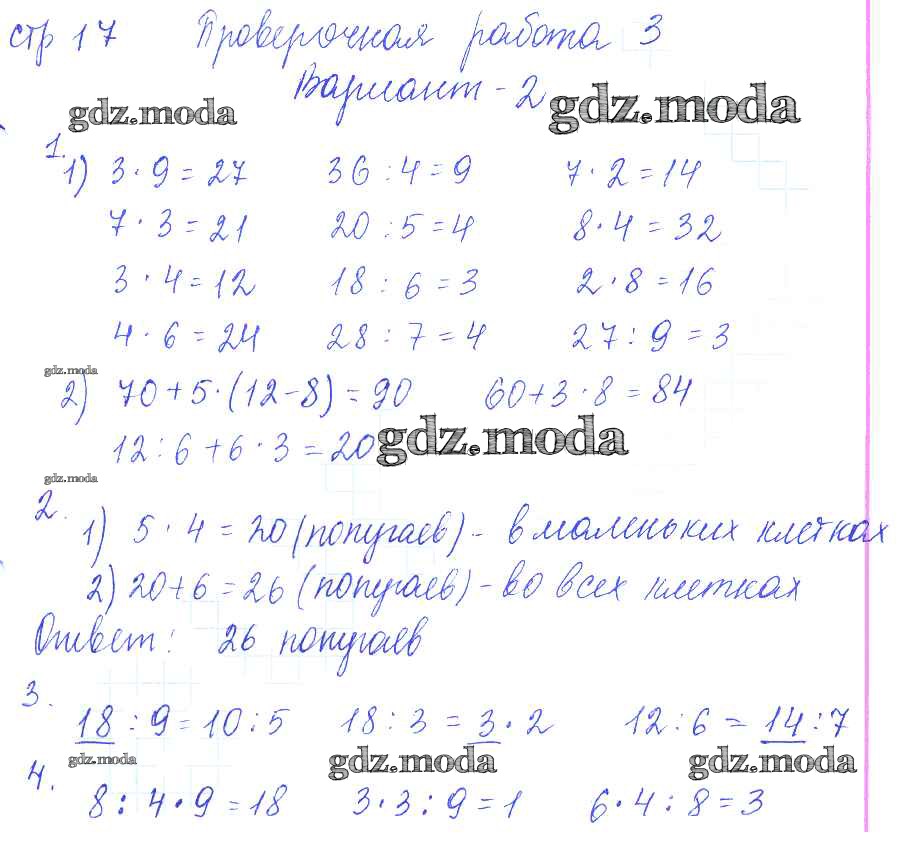 стр 17 Проверочная работа 3
Вариант - 2
gdz.moda gdz.moda
1.
1) 3 · 9 = 27 36 : 4 = 9 7 · 2 = 14
7 · 3 = 21 20 : 5 = 4 8 · 4 = 32
3 · 4 = 12 18 : 6 = 3 2 · 8 = 16
4 · 6 = 24 28 : 7 = 4 27 : 9 = 3
gdz.moda
2) 70 + 5 · (12 - 8) = 90 60 + 3 · 8 = 84
12 : 6 + 6 · 3 = 20 gdz.moda
gdz.moda
2.
1) 5 · 4 = 20 (попугаев) - в маленьких клетках
2) 20 + 6 = 26 (попугаев) - во всех клетках
Ответ: 26 попугаев
3.
18 : 9 = 10 : 5 18 : 3 = 3 · 2 12 : 6 = 14 : 7
gdz.moda gdz.moda gdz.moda
4.
8 : 4 · 9 = 18 3 · 3 : 9 = 1 6 · 4 : 8 = 3